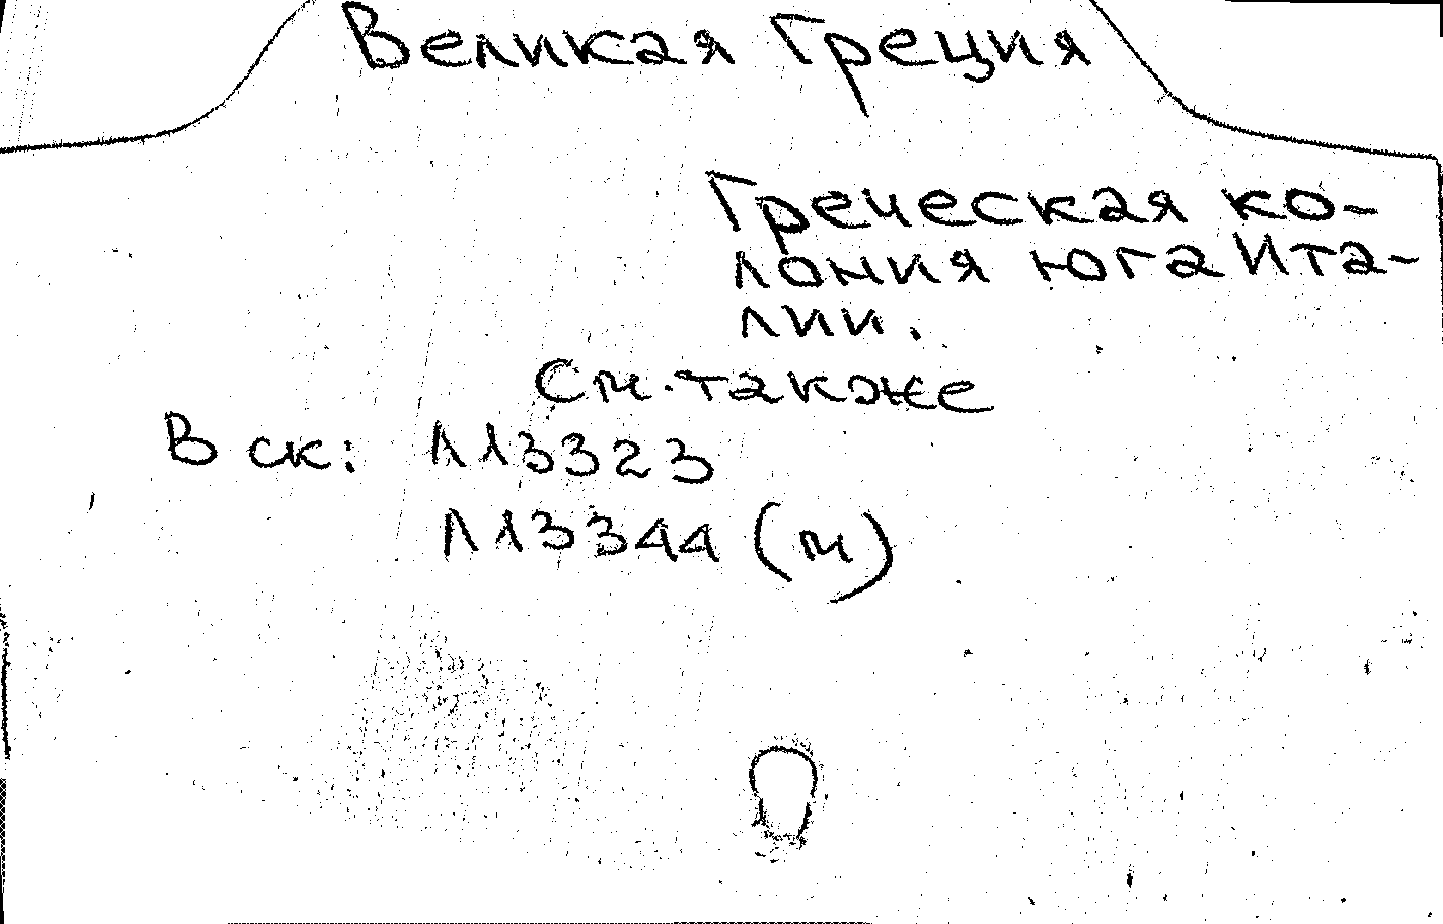 Великая Греция
Греческая ко-
лония юга Ита-
лии.
См. также
В ск: Л13323
Л13344 (м)